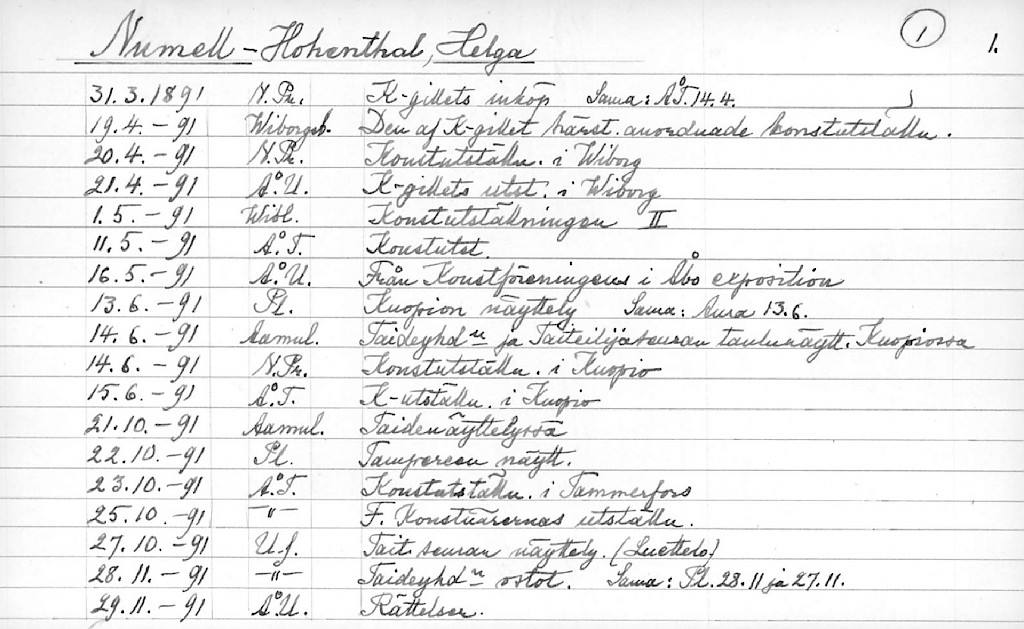 Numell - Hohenthal, Helga 1 1.
31.3.1891 N.Pr. K-gillets inköp Sama: Å.T. 14.4.
19.4.-91 Wiborgsb. Den af K-gillet härst. anordnade konstutställn.
20.4.-91 N.Pr. Konstutställn. i Wiborg
21.4.-91 Å.U. K-gillets utst. i Wiborg
1.5.-91 Wibl. Konstutställningen II
11.5.-91 Å.T. Konstutst.
16.5.-91 Å.U. Från Konstföreningens i Åbo exposition
13.6.-91 Pl. Kuopion näyttely Sama: Aura 13.6.
14.6.-91 Aamul. Taideyhdn ja Taiteilijaseuran taulunäytt. Kuopiossa
14.6.-91 N.Pr. Konstutställn. i Kuopio
15.6.-91 Å.T. K-utställn. i Kuopio
21.10.-91 Aamul. Taidenäyttelyssä
22.10.-91 Pl. Tampereen näytt.
23.10.-91 Å.T. Konstutställn. i Tammerfors
25.10.-91 -"- F. Konstnärernas utställn.
27.10.-91 U.s. Tait. seuran näyttely. (Luettelo)
28.11.-91 -"- Taideyhdn ostot. Sama: Pl. 28.11 ja 27.11.
29.11.-91 Å.U. Rättelser.